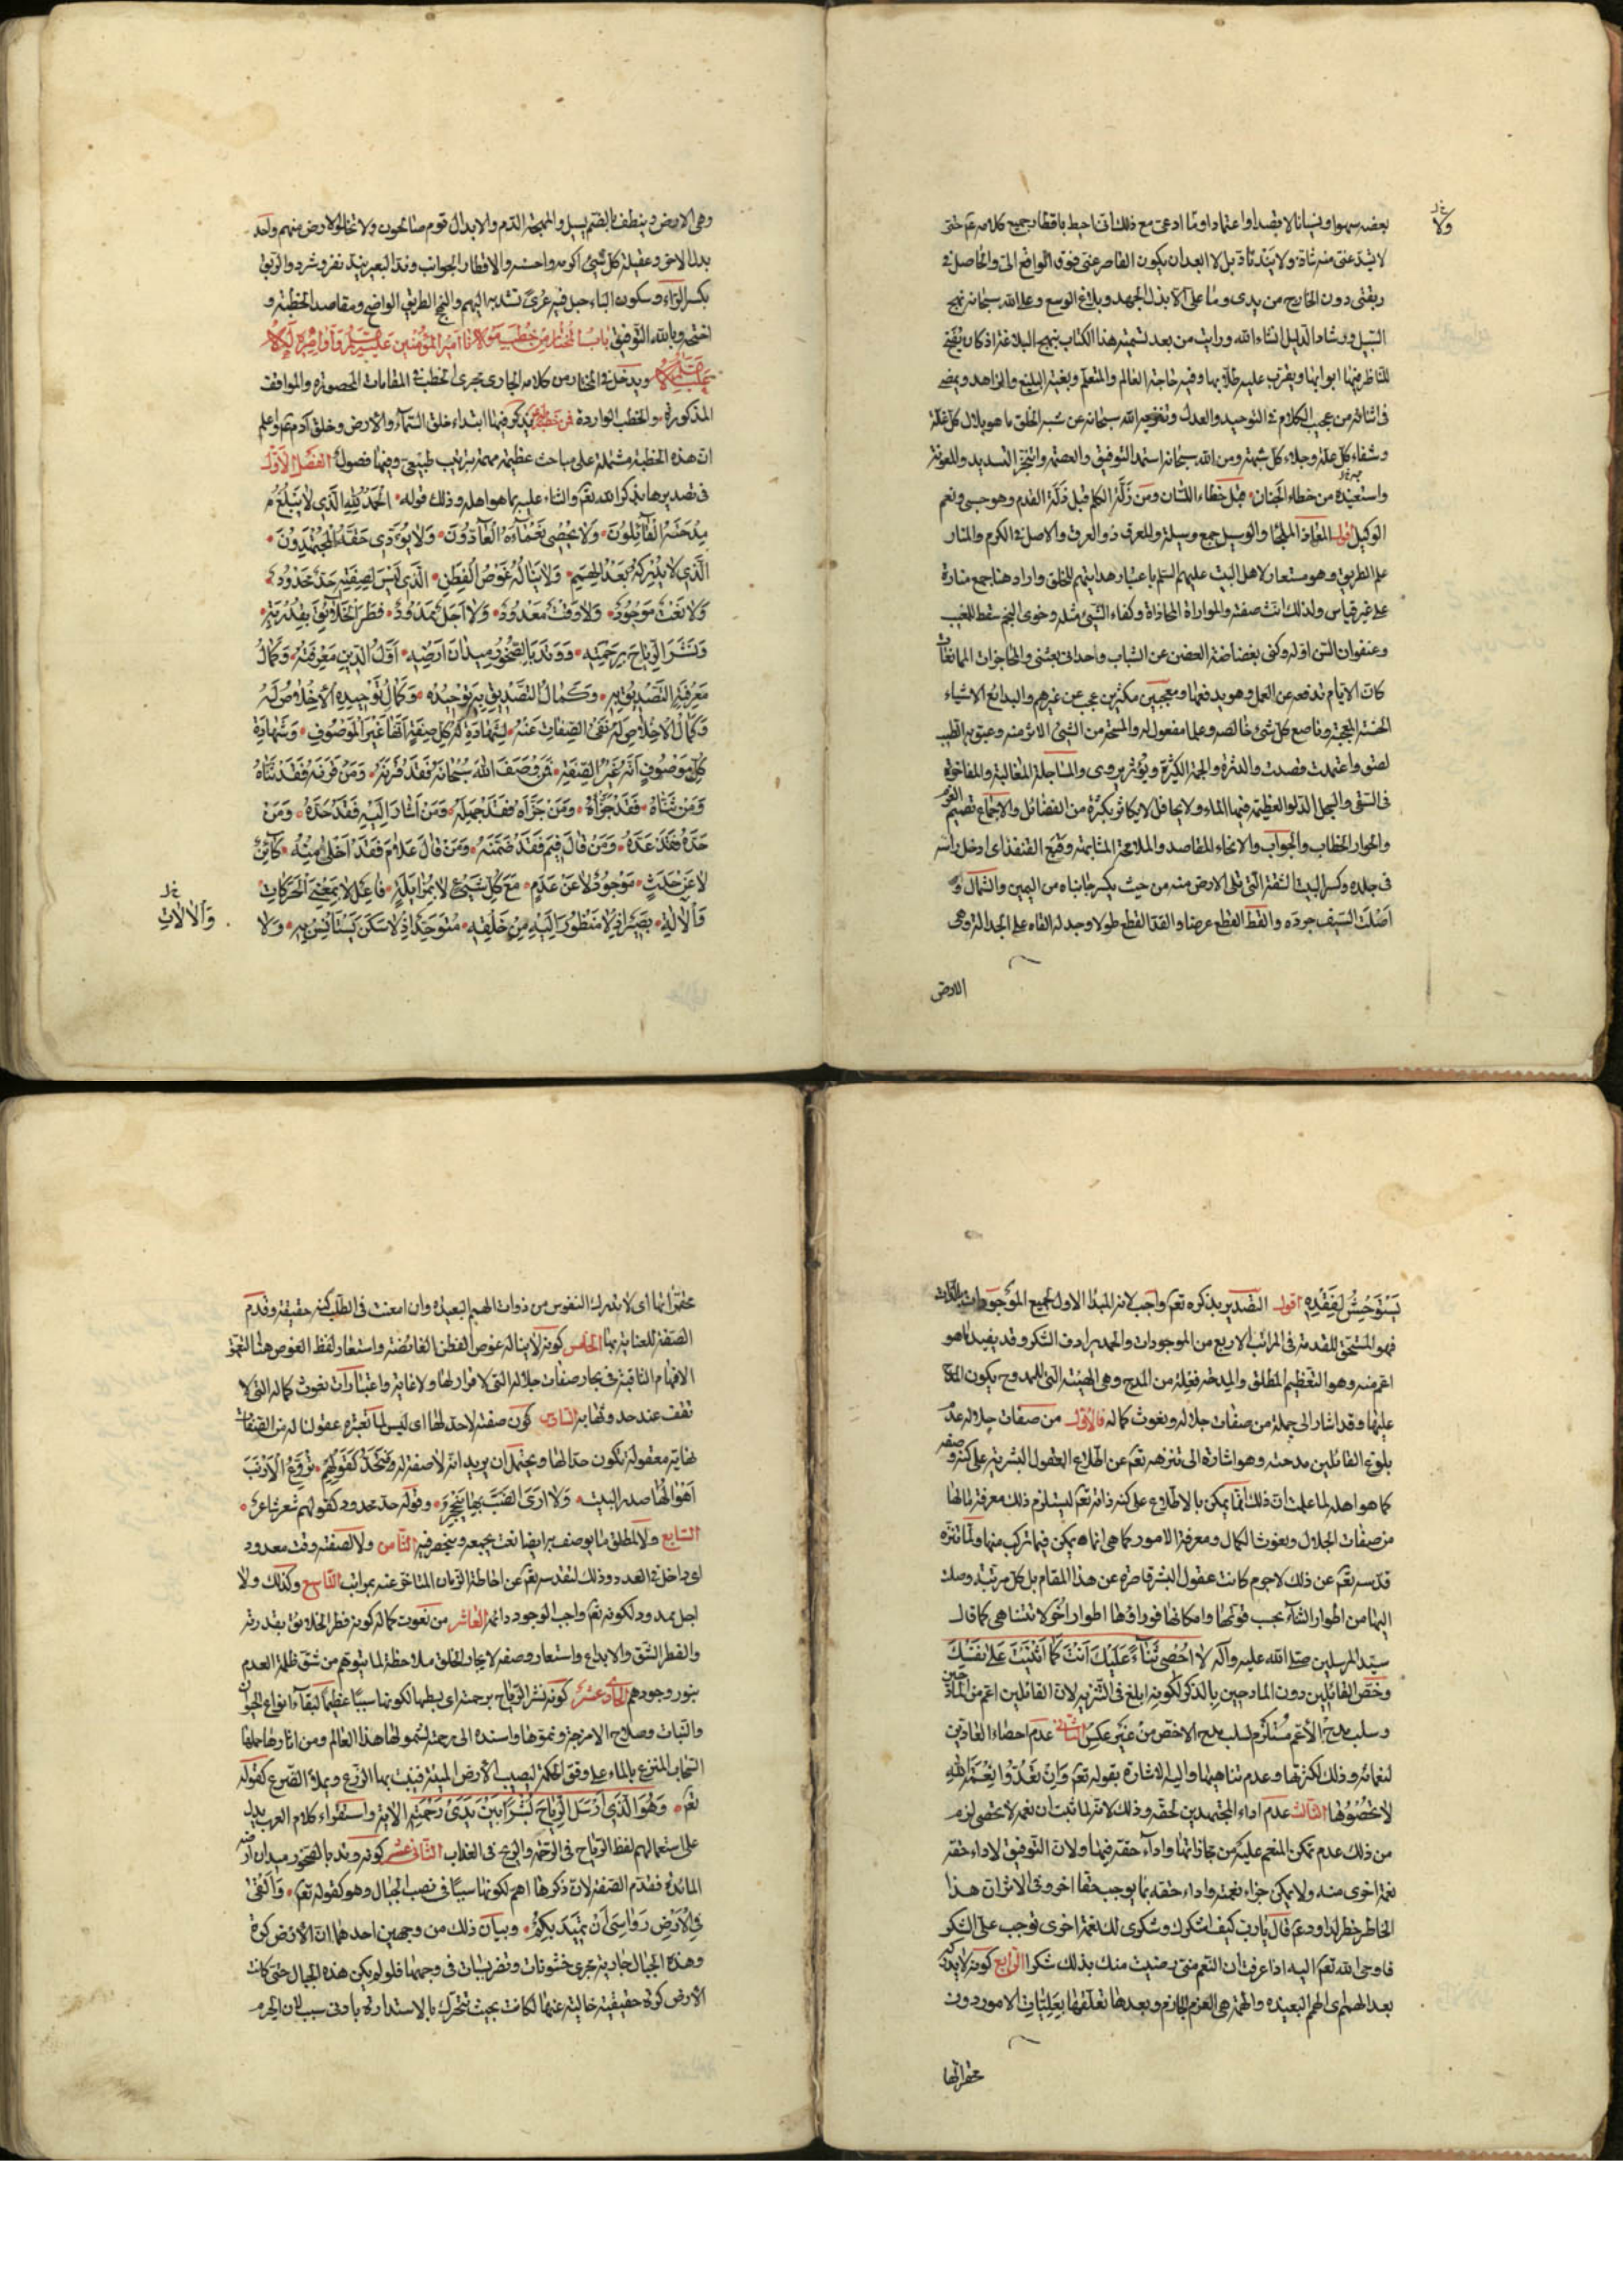 بعضه سهوا و نسيانا لا قصدا و اعتمادا و ما ادعى مع ذلك انى احيط باقطار جميع كلامه ع حتى
لا يشذ عنى منه شاذ و لا يند ناد بل لا ابعد ان يكون القاصر عنى فوق الواقع الى و الحاصل فى
ربقتى دون الخارج من يدى و ما على الا بذل الجهد و بلاغ الوسع و على الله سبحانه نهج
السبيل و رشاد الدليل انشاء الله و رايت من بعد تسمية هذا الكتاب بنهج البلاغة اذ كان يفتح
للناظر فيها ابوابها و يقرب عليه طلابها و فيه حاجة العالم و المتعلم و بغية البليغ و الزاهد و يمضى
فى اثنائه من عجيب الكلام فى التوحيد و العدل و تنزيه الله سبحانه عن شبه الخلق ما هو بلال كل غلة
و شفاء كل علة و جلاء كل شبهة و من الله سبحانه استمد التوفيق و العصمة و اتنجز التسديد و المعونة
و استعيذه من خطاء الجنان قبل خطاء اللسان و من زلة الكلم قبل زلة القدم و هو حسبى و نعم
الوكيل اقول المعاذ الملجأ و الوسيل جمع وسيلة و المعرق ذو العرق و الاصل فى الكرم و المنار
علم الطريق و هو مستعار لاهل البيت عليهم السلم باعتبار هدايتهم للخلق و اراد هنا جمع منارة
على غير قياس و لذلك انث صفته و الموازاة المحاذاة و كفاء الشيئ مثله و خوى النجم سقط للمغيب
و عنفوان السن اوله و كنى بغضاضة الغصن عن الشباب و احدانى بعثنى و المحاجزات الممانعات
كان الايام تدفعه عن العمل و هو يدفعها و معجبين مكثرين عجب عن غيرهم و البدائع الاشياء
الحسنة المعجبة و ناصع كل شئ خالصه و علما مفعول له و المسحة من الشيئ الاثر منه و عبق به الطيب
لصق و اعتمدت قصدت و الدثرة و الجمة الكثيرة و يؤثر يروى و المساجلة المغالبة و المفاخرة
فى السقى و السجل الدلو العظيمة فيها الماء و لا يحافل لا يكاثر بكثرة من الفضائل و الاجماع تصميم العزم
و الحوار الخطاب و الجواب و الانحاء المقاصد و الملامحة المشابهة و قبع القنفذ اى ادخل راسه
فى جلده و كسر البيت الشقة التى تلى الارض منه من حيث يكسر جانباه من اليمين و الشمال و
اصلت السيف جرده و القط القطع عرضا و القد القطع طولا و جدله القاه على الجدالة و هى
الارض
ولا
وهى الارض و ينطف بالضم يسيل و المهجة الدم و الابدال قوم صالحون و لا تخلو الارض منهم واحد
بدل الاخر و عقيلة كل شيئ اكرمه و احسنه و الاقطار الجوانب و ند البعير يند نفر و شرد و الربق
بكسر الراء و سكون الباء حبل فيه عرى تشد به البهم و النهج الطريق الواضح و مقاصد الخطبة و
اضحة و بالله التوفيق باب المختار من خطب مولانا امير المؤمنين
و يدخل فى المختار من كلامه الجارى مجرى الخطب فى المقامات المحصورة و المواقف
المذكورة و الخطب الواردة فمن خطبة له يذكر فيها ابتداء خلق السماء و الارض و خلق آدم ع و اعلم
ان هذه الخطبة مشتملة على مباحث عظيمة مهمة بترتيب طبيعى و فيها فصول الفصل الاول
فى تصديرها بذكر الله تعم و الثناء عليه بما هو اهله و ذلك قوله الحمد لله الذى لا يبلغ
مدحته القائلون و لا يحصى نعماءه العادون و لا يؤدى حقه المجتهدون
الذى لا يدركه بعد الهمم و لا يناله غوص الفطن الذى ليس لصفته حد محدود
و لا نعت موجود و لا وقت معدود و لا اجل ممدود فطر الخلائق بقدرته
و نشر الرياح برحمته و وتد بالصخور ميدان ارضه اول الدين معرفته و كمال
معرفته التصديق به و كمال التصديق به توحيده و كمال توحيده الاخلاص له
و كمال الاخلاص له نفى الصفات عنه لشهادة كل صفة انها غير الموصوف و شهادة
كل موصوف انه غير الصفة فمن وصف الله سبحانه فقد قرنه و من قرنه فقد ثناه
و من ثناه فقد جزاه و من جزاه فقد جهله و من اشار اليه فقد حده و من
حده فقد عده و من قال فيم فقد ضمنه و من قال علام فقد اخلى منه كائن
لا عن حدث موجود لا عن عدم مع كل شيئ لا بمزايلة فاعل لا بمعنى الحركات
و الالة بصير اذ لا منظور اليه من خلقه متوحد اذ لا سكن يستانس به و لا
والالات
يستوحش لفقده اقول التصدير بذكره تعم واجب لانه المبدأ الاول لجميع الموجودات
فهو المستحق للتقدمة فى المراتب الاربع من الموجودات و الحمد يرادف الشكر و قد يفيد ما هو
اعم منه و هو التعظيم المطلق و المدحة فعلة من المدح و هى الهيئة التى للممدوح يكون المدح
عليها و قد اشار الى جملة من صفات جلاله و نعوت كماله فالاول من صفات جلاله عدم
بلوغ القائلين مدحته و هو اشارة الى تنزهه تعم عن اطلاع العقول البشرية على كنه وصفه
كما هو اهله لما علمت ان ذلك انما يمكن بالاطلاع على كنه ذاته تعم ليستلزم ذلك معرفة ما لها
من صفات الجلال و نعوت الكمال و معرفة الامور كما هى انما يمكن فيما تركب منها و لما تنزه
قدسه تعم عن ذلك لا جرم كانت عقول البشر قاصرة عن هذا المقام بل كل مرتبة وصلت
اليها من اطوار الثناء بحسب قوتها و امكانها فوراؤها اطوار اخر لا تتناهى كما قال
سيد المرسلين صلى الله عليه و آله لا احصى ثناء عليك انت كما اثنيت على نفسك
و خص القائلين دون المادحين بالذكر لكونه ابلغ فى التنزيه لان القائلين اعم من المادحين
و سلب مدح الاعم مستلزم لسلب مدح الاخص من غير عكس الثانى عدم احصاء العادين
لنعمائه و ذلك لكثرتها و عدم تناهيها و اليه الاشارة بقوله تعم و ان تعدوا نعمة الله
لا تحصوها الثالث عدم اداء المجتهدين لحقه و ذلك لانه لما ثبت ان نعمه لا تحصى لزم
من ذلك عدم تمكن المنعم عليه من مجازاتها و اداء حقه فيها و لان التوفيق لاداء حقه
نعمة اخرى منه و لا يمكن جزاء نعمته و اداء حقه بما يوجب حقا اخر و فى الاثر ان هذا
الخاطر خطر لداود ع فقال يا رب كيف اشكرك و شكرى لك نعمة اخرى توجب على الشكر
فاوحى الله تعم اليه اذا عرفت ان النعم منى رضيت منك بذلك شكرا الرابع كونه لا يدركه
بعد الهمم اى الهمم البعيدة و الهمة هى العزم الجازم و بعدها تعلقها بعليات الامور دون
محقراتها
محقراتها اى لا يدركه النفوس من ذوات الهمم البعيدة و ان امعنت فى الطلب كنه حقيقته و قدم
الصفة للعناية بها الخامس كونه لا يناله غوص الفطن الفائضة و استعار لفظ الغوص هنا
الافهام الثاقبة فى بحار صفات جلاله التى لا قرار لها و لا غاية و اعتبارات نعوت كماله التى لا
تقف عند حد و نهاية السادس كون صفته لا حد لها اى ليس لما تعتبره عقولنا له من الصفات
نهاية معقولة تكون حدا لها و يحتمل ان يريد انه لا صفة له فتحد كقولهم
و لا ارى الضب بها ينجحر و قوله حد محدود كقولهم شعر شاعر
السابع و لا لمطلق ما يوصف به ايضا نعت يجمعه و ينحصر فيه الثامن و لا لصفته وقت معدود
اى داخل فى العدد و ذلك لتقدسه تعم عن احاطة الزمان المتاخر عنه بمراتب التاسع و كذلك و لا
اجل ممدود لكونه تعم واجب الوجود دائمه العاشر من نعوت كماله كونه فطر الخلائق بقدرته
و الفطر الشق و الابداع و استعار وصفه لايجاد الخلق ملاحظة لما يتوهم من شق ظلمة العدم
بنور وجودهم الحادى عشر كونه نشر الرياح برحمته اى بسطها لكونها سببا عظيما لبقاء انواع الحيوان
و النبات و صلاح الامزجة و نموها و اسنده الى رحمته لشمولها هذا العالم و من آثارها حملها
السحاب المترع بالماء على وفق الحكمة ليصيب الارض الميتة فينبت بها الزرع و يملأ الضرع كقوله
تعم و هو الذى ارسل الرياح بشرا بين يدى رحمته الاية و استقراء كلام العرب يدل
على استعمالهم لفظ الرياح فى الرحمة و الريح فى العذاب الثانى عشر كونه وتد بالصخور ميدان ارضه
المائدة فقدم الصفة لان ذكرها اهم لكونها سببا فى نصب الجبال و هو كقوله تعم و القى
فى الارض رواسى ان تميد بكم و بيان ذلك من وجهين احدهما ان الارض كرة
و هذه الجبال جارية مجرى خشونات و تضريسات فى وجهها فلو لم يكن هذه الجبال حتى كانت
الارض كرة حقيقية خالية عنها لكانت بحيث تتحرك بالاستدارة بادنى سبب لان الجرم